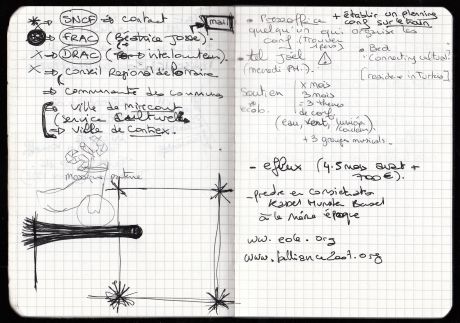 * → SNCF → contact
mail
FRAC (Béatrice Josse).
X → DRAC ( → interlocuteur)
X → Conseil Régional de Lorraine
→ Communauté des communes
→ Ville de Mirecourt
(service culturel)
→ Ville de Contrex.
Mosaïque
• Pressoffice
+ établir un planning
conf sur le train
quelqu'un qui organise les
conf (trouver
• tel Joël
(mercredi PM.)
• Bed
Connecting cultures
[reside in Tortosa]
Soutien
écob.
x mois
3 mois
= 3 thèmes
de conf
(eau, vert, lumière
couleur)
+ 3 groupes musicals.
- eflux (4.5 mois avant +
700€).
- prendre en consideration
Kassel Munster Basel
à la même époque
www.eole.org
www.balliance2007.org